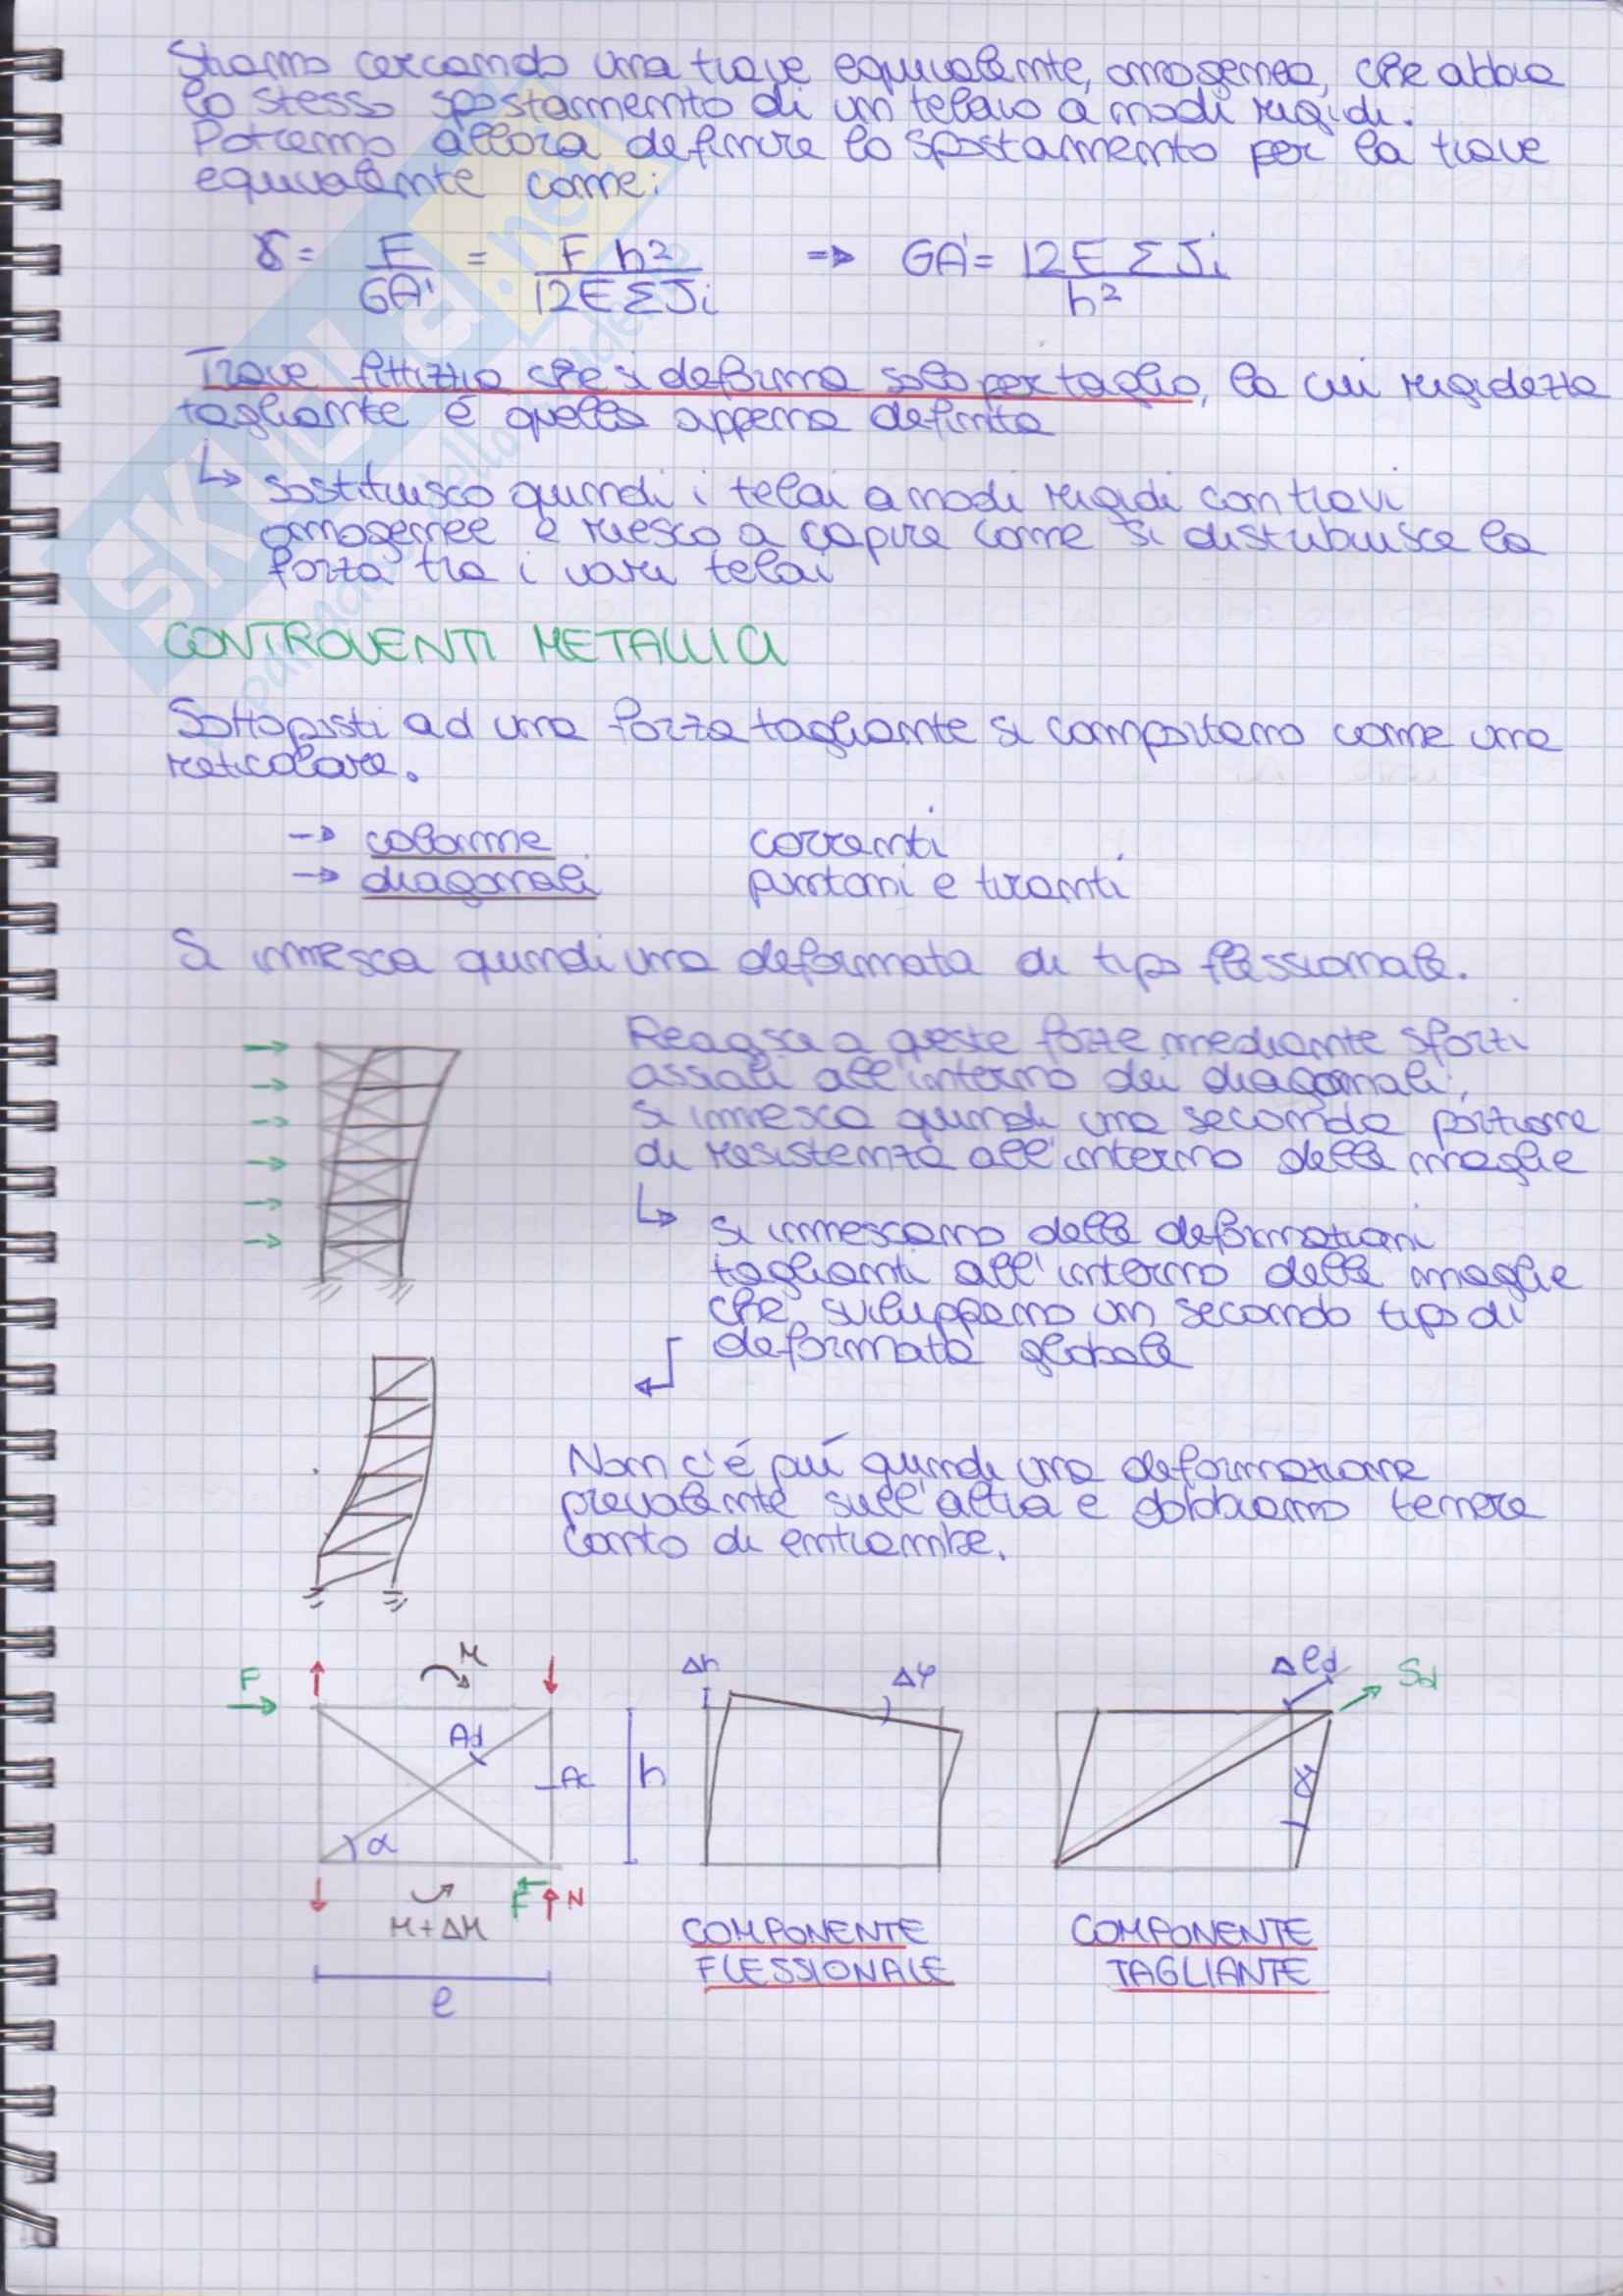 Stiamo cercando una trave equivalente, omogenea, che abbia
lo stesso spostamento di un telaio a nodi rigidi.
Potremo allora definire lo spostamento per la trave
equivalente come:
γ = F/GA' = F h²/12E ΣJi => GA' = 12E ΣJi/h²
Trave fittizia che si deforma solo per taglio, la cui rigidezza
tagliante é quella appena definita
↳ sostituisco quindi i telai a nodi rigidi con travi
omogenee e riesco a capire come si distribuisce la
forza tra i vari telai
CONTROVENTI METALLICI
Sottoposti ad una forza tagliante si comportano come una
reticolare.
→ colonne correnti
→ diagonali puntoni e tiranti
Si innesca quindi una deformata di tipo flessionale.
Reagisce a queste forze mediante sforzi
assiali all'interno dei diagonali;
si innesca quindi una seconda porzione
di resistenza all'interno delle maglie
↳ si innescano delle deformazioni
taglianti all'interno delle maglie
che sviluppano un secondo tipo di
deformata globale
Non c'é piú quindi una deformazione
prevalente sull'altra e dobbiamo tenere
conto di entrambe.
F M Δh Δφ Δld Sd
Ad Ac h γ
α
M+ΔM F N
l
COMPONENTE
FLESSIONALE
COMPONENTE
TAGLIANTE
SKUOLA.net